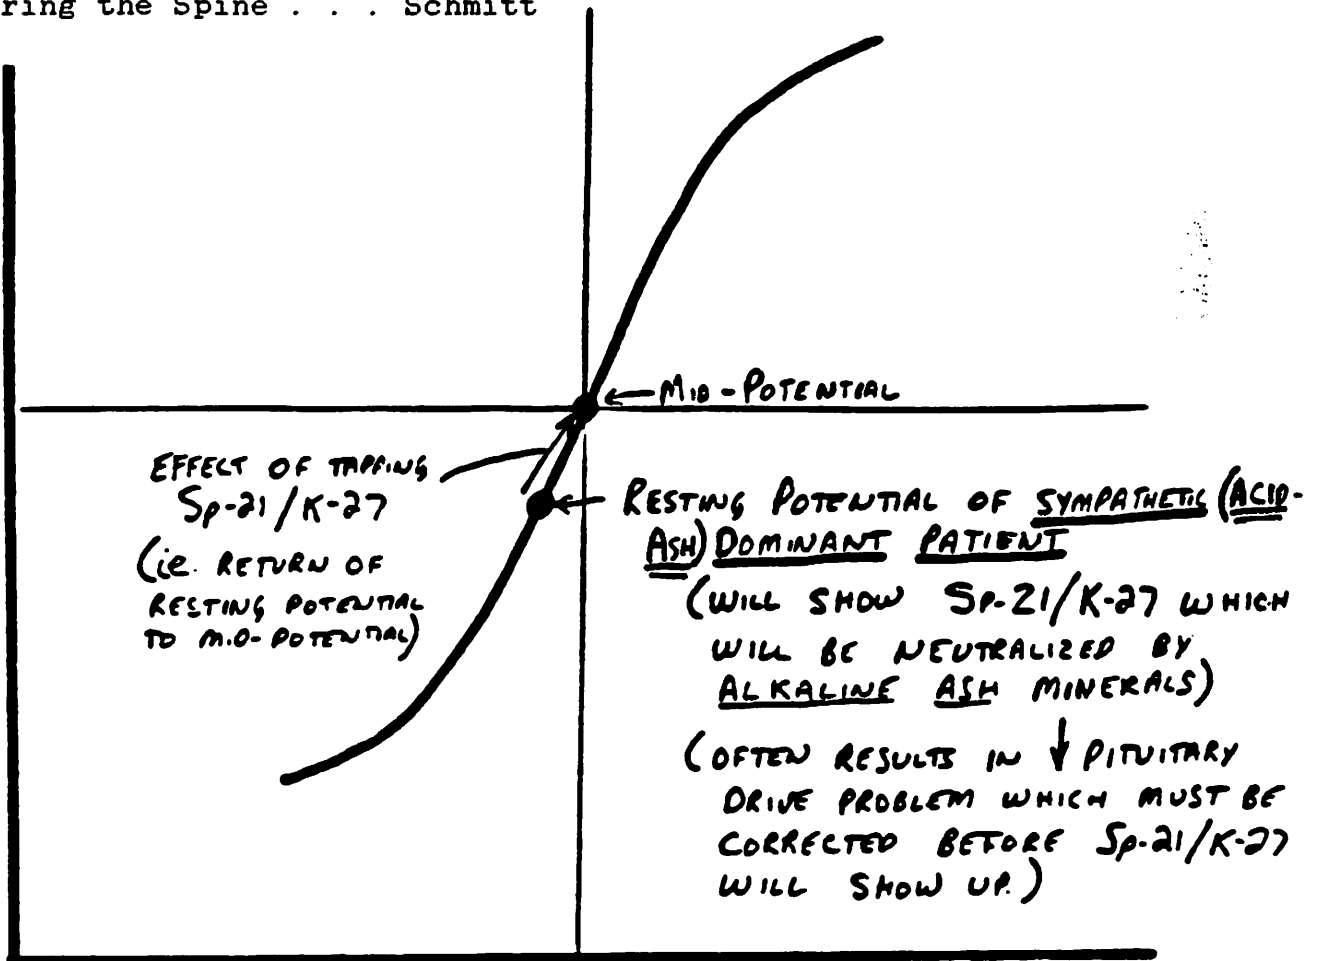 ring the Spine . . . Schmitt
MID-POTENTIAL
EFFECT OF TAPPING
Sp-21/K-27
(ie. RETURN OF
RESTING POTENTIAL
TO MID-POTENTIAL)
RESTING POTENTIAL OF SYMPATHETIC (ACID-
ASH) DOMINANT PATIENT
(WILL SHOW Sp-21/K-27 WHICH
WILL BE NEUTRALIZED BY
ALKALINE ASH MINERALS)
(OFTEN RESULTS IN ↓ PITUITARY
DRIVE PROBLEM WHICH MUST BE
CORRECTED BEFORE Sp-21/K-27
WILL SHOW UP.)